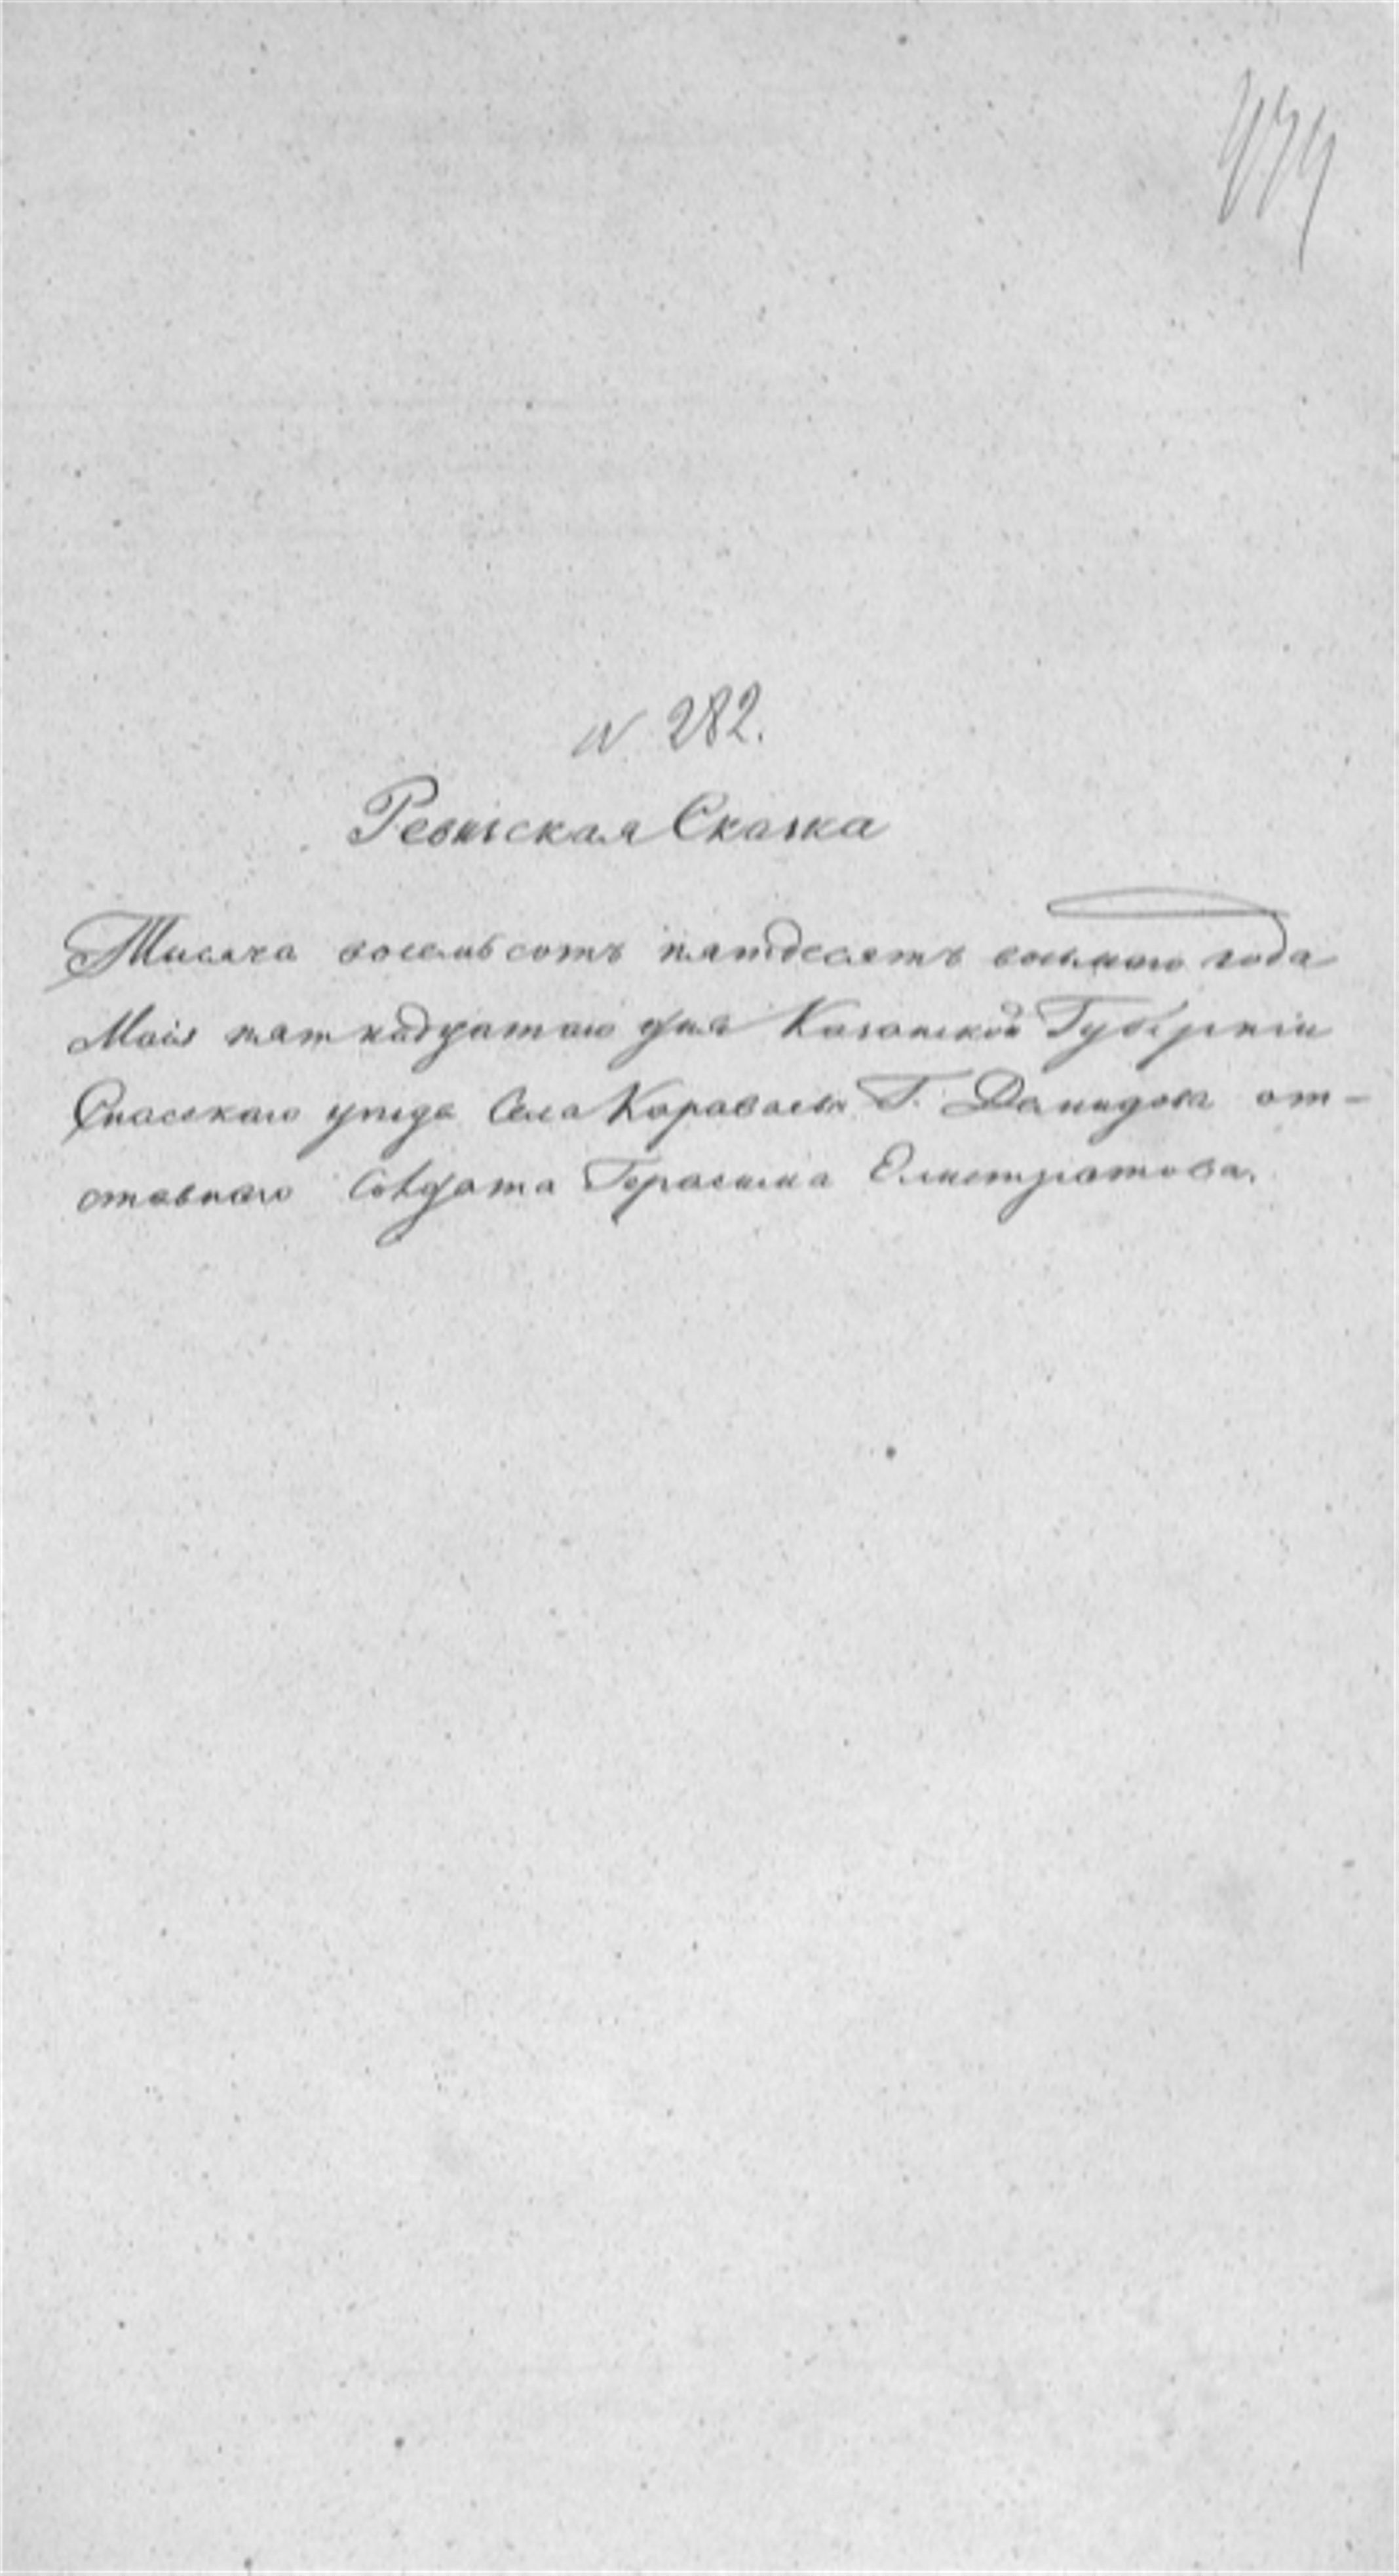 N 282.
Ревиская Сказка
Тысяча восемьсотъ пятдесятъ восьмаго года
Маія пятнадцатаго дня Казанской Губерніи
Спасскаго уезда Села Караваева Г. Данидова от-
ставнаго Солдата Герасима Елистратова.